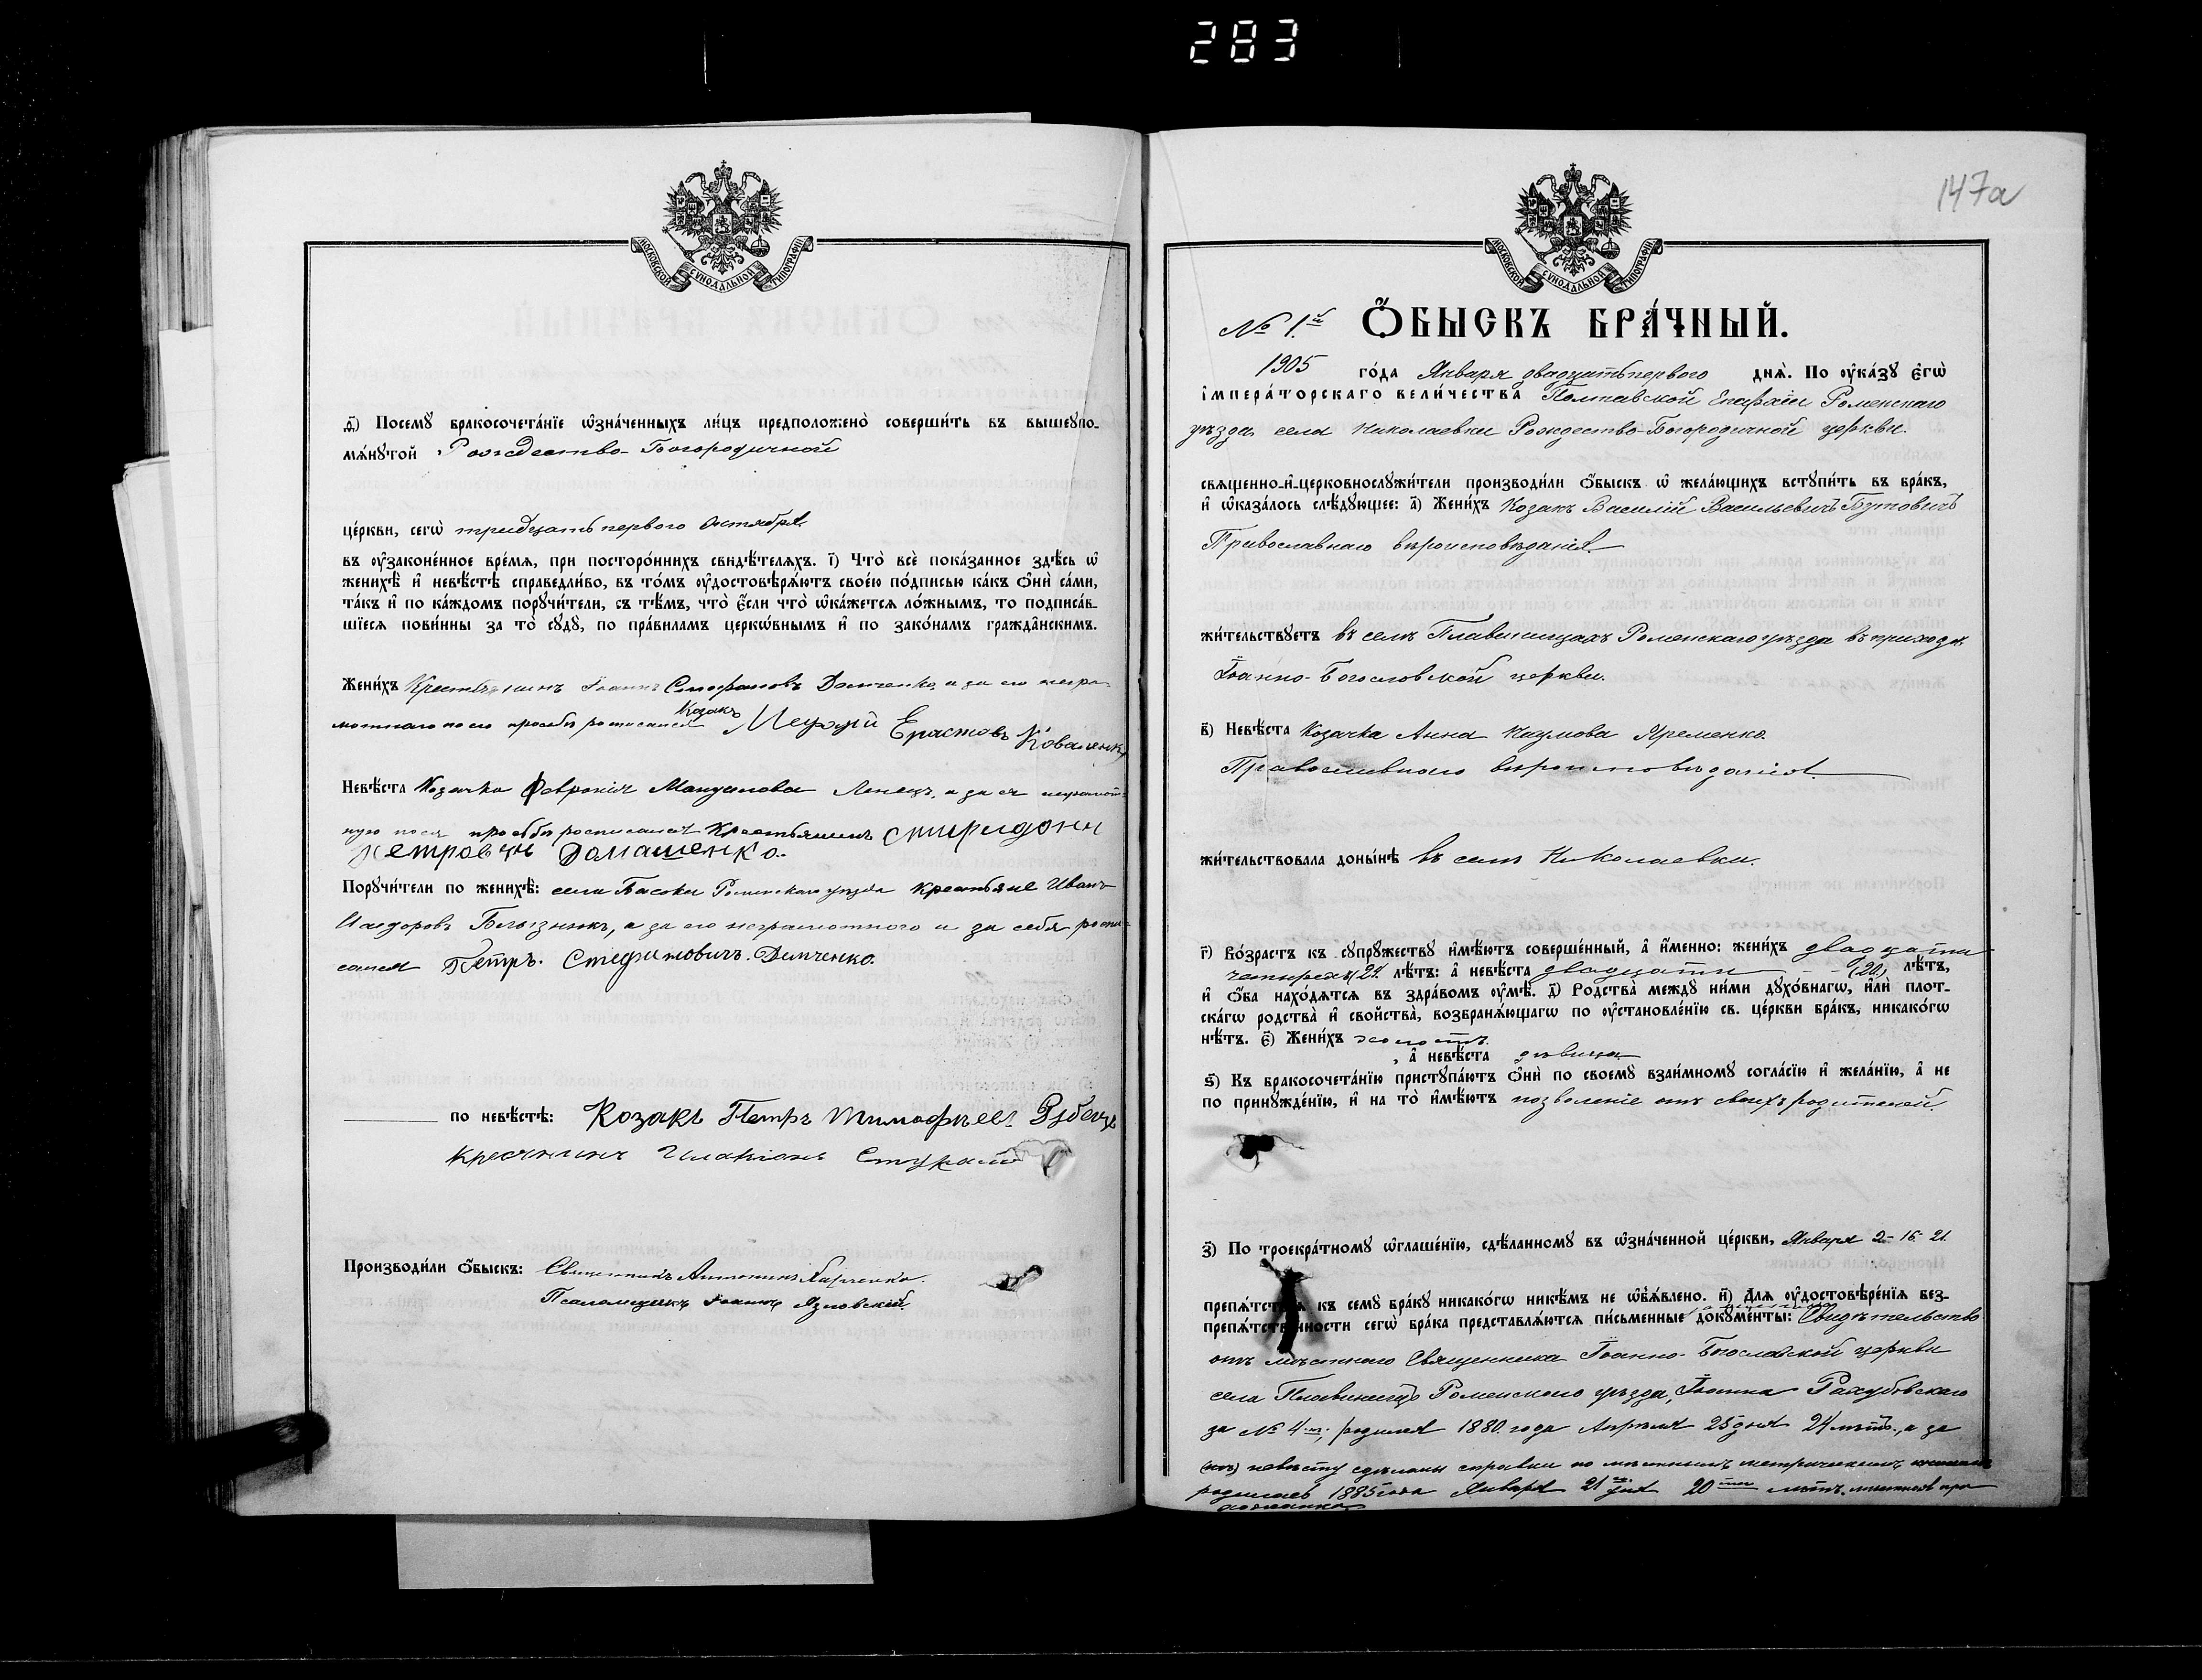 283
МОСКОВСКОЙ СѴНОДАЛЬНОЙ ТИПОГРАФІИ
ѳ҃) Посемꙋ бракосочета́нїе ѡ҆зна́ченныхъ ли́цъ предположено̀ соверши́ть въ вышеꙋпо-
мѧ́нꙋтой Рождество-Богородичной
це́ркви, сегѡ̀ тридцать первого Октября
въ ᲂу҆законе́нное вре́мѧ, при посторо́ннихъ свидѣ́телѧхъ. і҃) Что̀ всѐ пока́занное здѣ́сь ѡ҆
женихѣ̀ и҆ невѣ́стѣ справедли́во, въ то́мъ ᲂу҆достовѣрѧ́ютъ свое́ю по́дписью ка́къ ѻ҆нѝ са́ми,
та́къ и҆ по ка́ждомъ порꙋчи́тели, съ тѣ́мъ, что̀ є҆́сли что̀ ѡ҆ка́жетсѧ ло́жнымъ, то подписа́в-
шїесѧ пови́нны за то̀ сꙋдꙋ̀, по пра́виламъ церкѡ́внымъ и҆ по зако́намъ гражда̂нскимъ.
Жени́хъ Крестьянинъ Іоаннъ Стефановъ Демченко, а за его негра-
мотнаго по его просьбѣ росписался Козакъ Ерастовъ Коваленко
Невѣ́ста Козачка Февронія Мануилова Ленецъ, а за ея неграмот-
ную по ея просьбѣ росписался Крестьянинъ Спиридонъ
Петровичъ Домашенко.
Порꙋчи́тели по женихѣ̀: села Басовки Роменскаго уѣзда крестьяне Иванъ
Исидоровъ, а за его неграмотного и за себя роспи-
сался Петръ. Стефановичъ. Демченко.
по невѣ́стѣ: Козакъ Петръ Тимофѣевъ Рубецъ
Иларіонъ
Производи́ли ѻ҆́быскъ: Священникъ Антонинъ Харченко.
Псаломщикъ Іоаннъ Язловскій.
147а
МОСКОВСКОЙ СѴНОДАЛЬНОЙ ТИПОГРАФІИ
№ 1.й Ѻ҆́БЫСКЪ БРА́ЧНЫЙ.
1905 го́да Января двадцать первого днѧ̀. По ᲂу҆ка́зꙋ є҆гѡ̀
і҆мпера́торскаго вели́чества Полтавской Епархіи Роменскаго
уѣзда села Николаевки Рождество-Богородичной церкви.
свѧщенно-и҆-церковнослꙋжи́тели производи́ли ѻ҆́быскъ ѡ҆ жела́ющихъ встꙋпи́ть въ бра́къ,
и҆ ѡ҆каза́лось слѣ́дꙋющее: а҃) Жени́хъ Козакъ Василій Васильевичъ Бутовичъ
Православнаго вѣроисповѣданія.
жи́тельствꙋетъ въ селѣ Плавинищахъ Роменскаго уѣзда въ приходѣ
Іоанно-Богословской церкви.
в҃) Невѣ́ста Козачка Анна Наумова Яременко
Православнаго вѣроисповѣданія.
жи́тельствовала доны́нѣ въ селѣ Николаевки.
г҃) Во́зрастъ къ сꙋпрꙋ́жествꙋ и҆мѣ́ютъ соверше́нный, а҆ и҆́менно: жени́хъ двадцати
четырехъ (24) лѣ́тъ: а҆ невѣ́ста двадцати (20) лѣ́тъ,
и҆ ѻ҆́ба нахо́дѧтсѧ въ здра́вомъ ᲂу҆мѣ̀. д҃) Родства̀ междꙋ ни́ми дꙋхо́внагѡ, и҆лѝ плот-
ска́гѡ родства̀ и҆ сво́йства, возбранѧ́ющагѡ по ᲂу҆становле́нїю св. це́ркви бра́къ, никако́гѡ
нѣ́тъ. є҃) Жени́хъ холостъ
, а҆ невѣ́ста дѣвица
ѕ҃) Къ бракосочета́нїю пристꙋпа́ютъ ѻ҆нѝ по своемꙋ̀ взаи́мномꙋ согла́сїю и҆ жела́нїю, а҆ не
по принꙋжде́нїю, и҆ на то̀ и҆мѣ́ютъ позволеніе отъ своихъ родителей.
з҃) По троекра́тномꙋ ѡ҆глаше́нїю, сдѣ́ланномꙋ въ ѡ҆зна́ченной це́ркви, Января 2-16-21.
препѧ́тствїѧ къ семꙋ̀ бра́кꙋ никако́гѡ никѣ́мъ не ѡ҆б̾ѧ́влено. и҃) Длѧ ᲂу҆достовѣре́нїѧ без-
препѧ́тственности сегѡ̀ бра́ка представлѧ́ютсѧ пи́сьменные докꙋме́нты: Свидѣтельство
отъ мѣстнаго Священника Іоанно-Богословской церкви
села Плавинищъ Роменскаго уѣзда, Іоанна
за № 4-м, родился 1880 года Апрѣля 25 дня 24 лѣтъ, а за
невѣсту сдѣланы справки по мѣстнымъ метрическимъ
родилась 1885 года Января 21 дня 20 лѣтъ